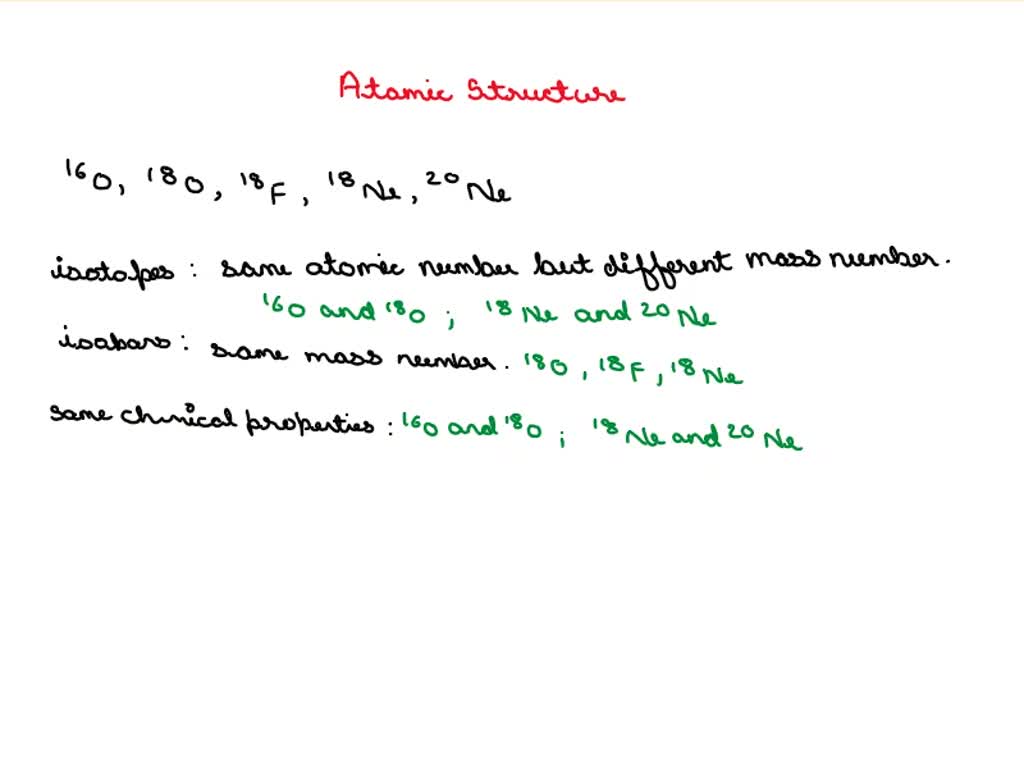 Atomic Structure
¹⁶O, ¹⁸O, ¹⁸F, ¹⁸Ne, ²⁰Ne
isotopes : same atomic number but different mass number.
¹⁶O and ¹⁸O ; ¹⁸Ne and ²⁰Ne
isobars : same mass number. ¹⁸O, ¹⁸F, ¹⁸Ne
same chemical properties : ¹⁶O and ¹⁸O ; ¹⁸Ne and ²⁰Ne